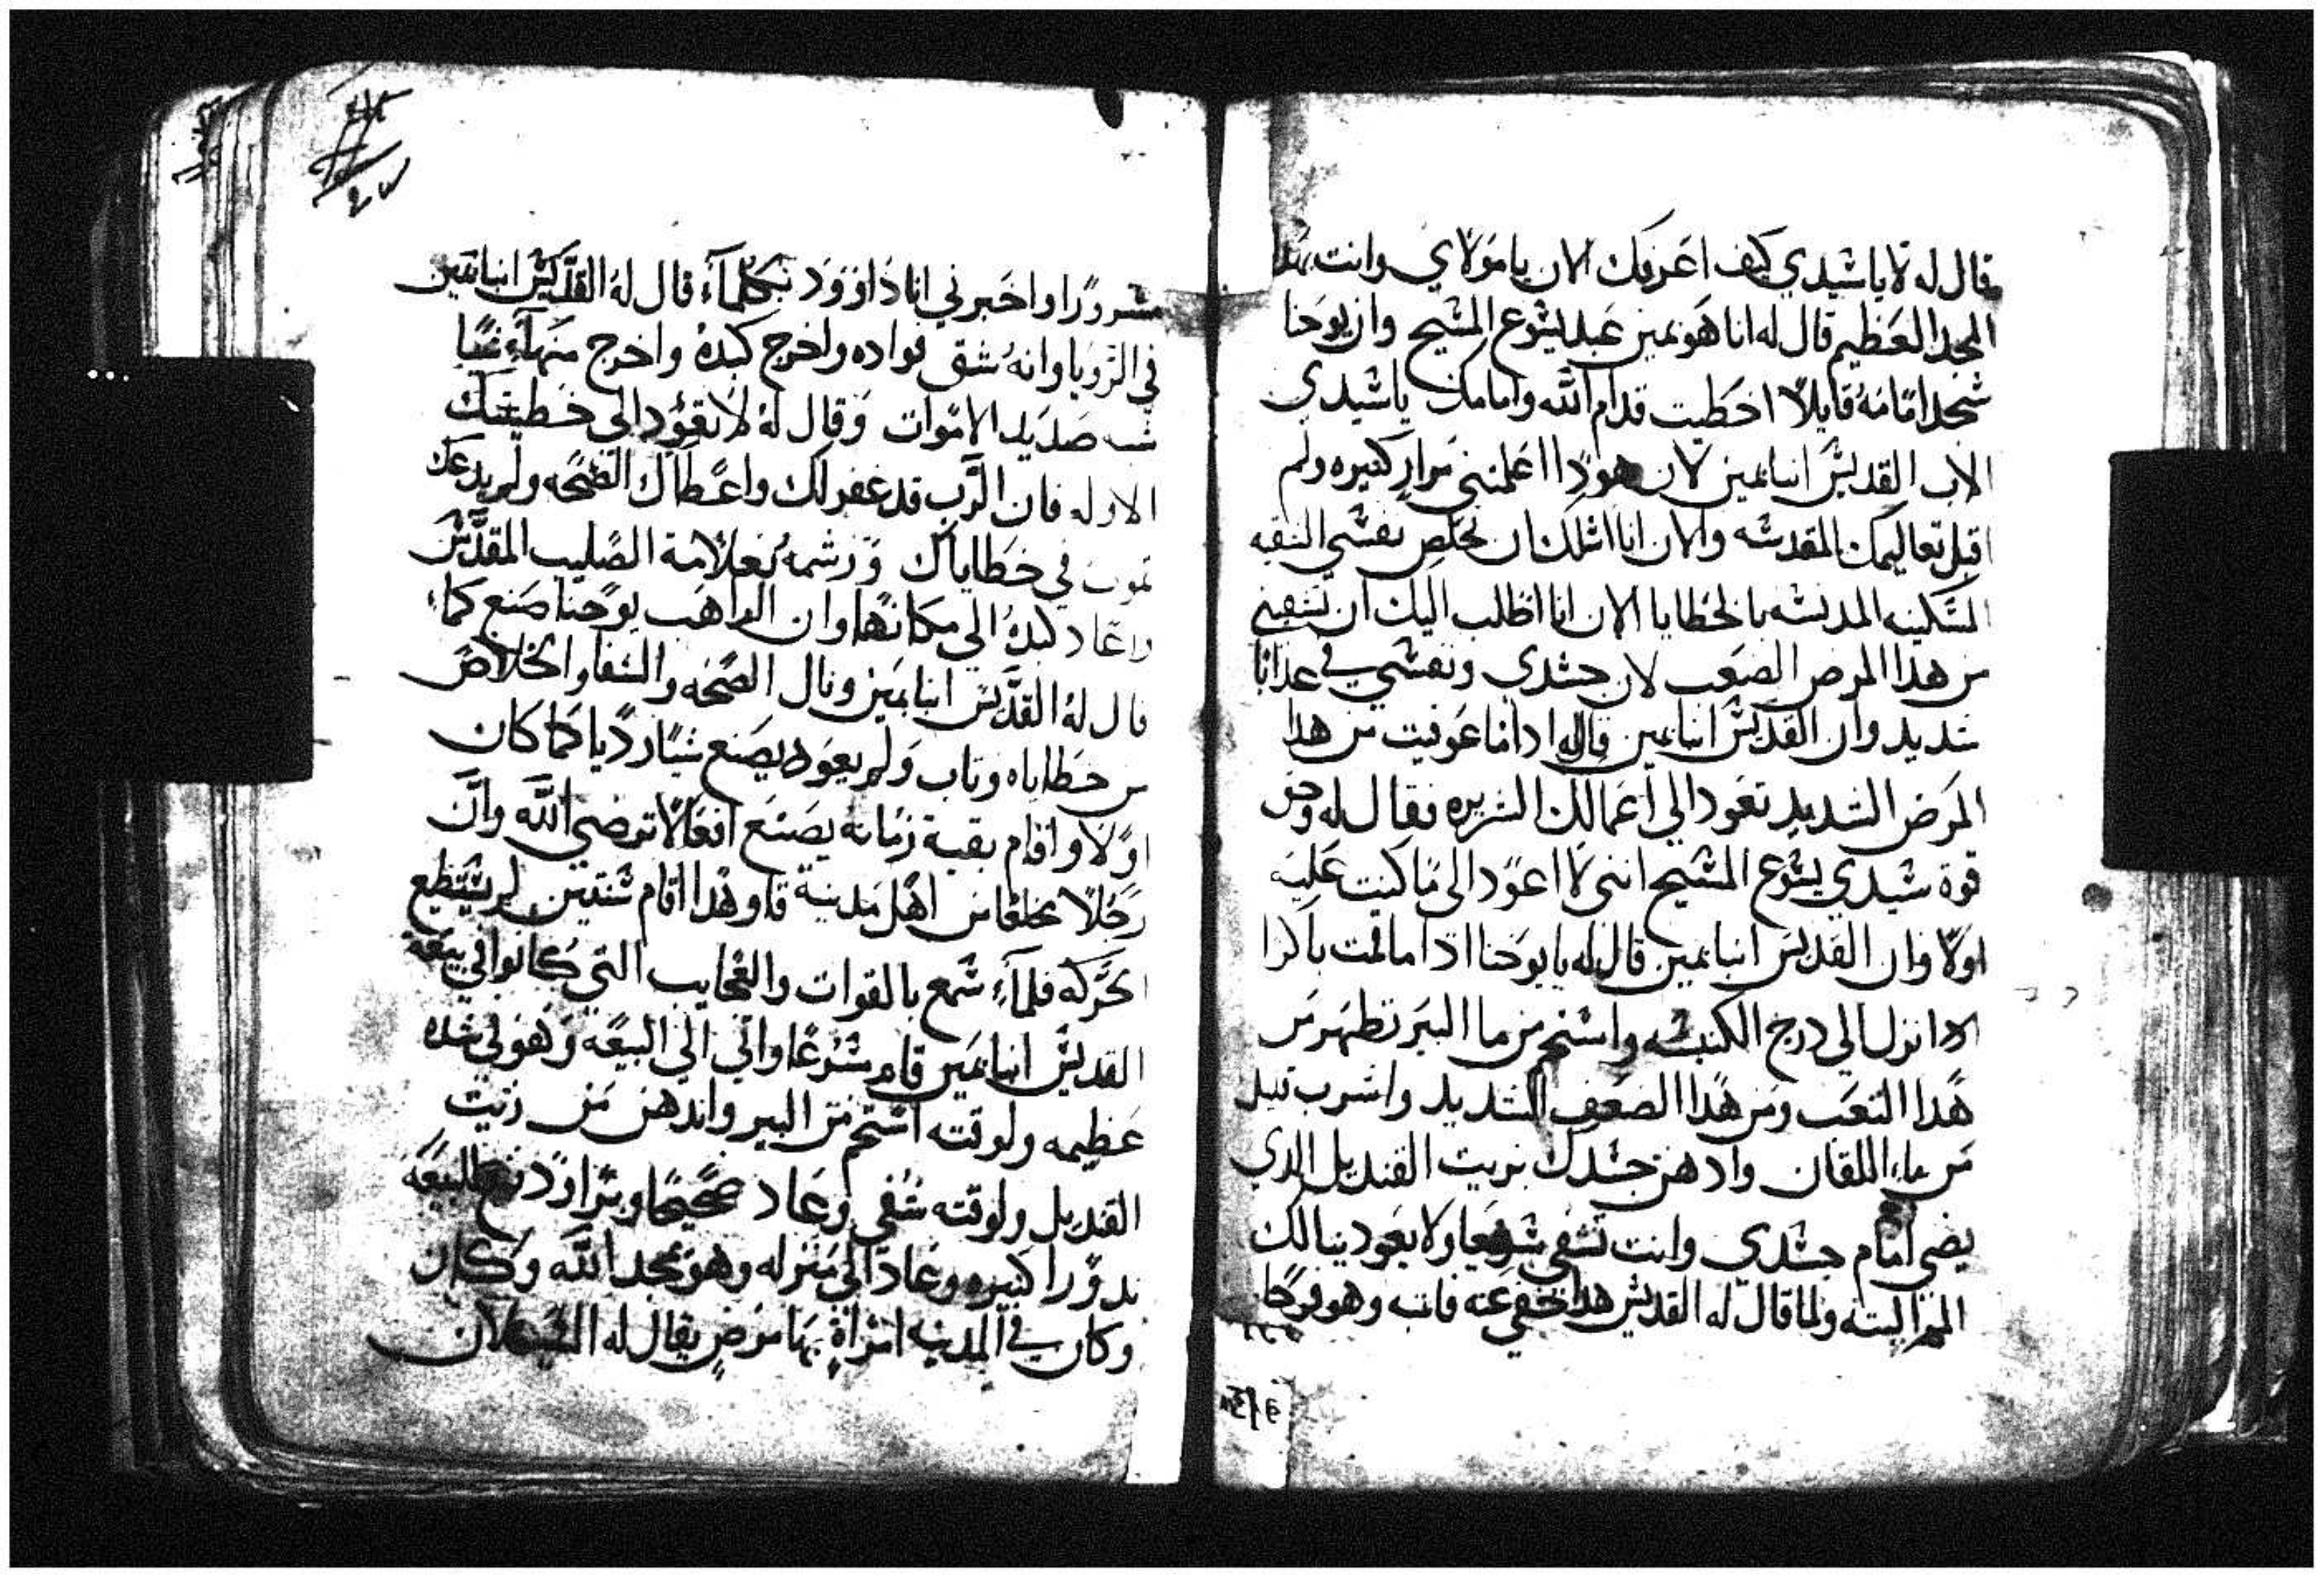 قال له لا ياشيدي كيف اعرفك الان يامولاي وانت بهدا
المجد العظيم قال له انا هو بمين عبد يشوع المشيح وان يوحنا
شجد امامه قايلا اخطيت قدام الله وامامك ياشيدي
الاب القديش انبا بمين لان هودا اعلمتني مرار كتيره ولم
اقبل تعاليمك المقدشه والان انا اشلك ان تخلص نفشي النقيه
المشكينه المدنشه بالخطايا الان انا اطلب اليك ان تشفيني
من هدا المرض الصعب لان جشدي ونفشي في عدابا
شديد وان القديش انبا بمين قال له ادا ما عوفيت من هدا
المرض الشديد تعود الي اعمالك الشريره فقال له وحق
قوة شيدي يشوع المشيح انني لا اعود الى ما كنت عليه
اولا وان القديش انبا بمين قال له يا يوحنا ادا ما قمت باكرا
انزل الي درج الكنيشه واشتحم من ما البير تطهر من
هدا التعب ومن هدا الضعف الشديد واشرب قليل
من ماء اللقان وادهن جشدك بزيت القنديل الدي
يضي امام جشدي وانت تشفي شريعا ولا يعود ينالك
الم البته ولما قال له القديش هدا خفي عنه فانتبه وهو فرحا
مشرورا واخبرني انا داوود بتكلماء قال له القديش انبا بمين
في الرويا وانه شق فواده واخرج كبده واخرج منها شيا
شبه صديد الاموات وقال له لا تعود الي خطيتك
الاوله فان الرب قد غفر لك واعطاك الصحه ولم يدعك
تموت في خطاياك ورشمه بعلامة الصليب المقدش
واعاد كبده الي مكانها وان الراهب يوحنا صنع كماء
قال له القديش انبا بمين ونال الصحه والشفا والخلاص
من خطاياه وتاب ولم يعود يصنع شيا رديا كما كان
اولا واقام بقية زمانه يصنع افعالا ترضي الله وان
رجلا مخلعا من اهل مدينة قاو هدا اقام شنتين لم يشتطيع
الحركه فلماء شمع بالقوات والعجايب التي كانوا في بيعة
القديش انبا بمين قام مشرعا واتي الي البيعه وهو في شده
عظيمه ولوقته اشتحم من البير واندهن من زيت
القنديل ولوقته شفي وعاد صحيحا وبرا ودفع للبيعه
ندورا كتيره وعاد الي منزله وهو يمجد الله وكان
وكان في المدينه امراة بها مرض يقال له الشعلان